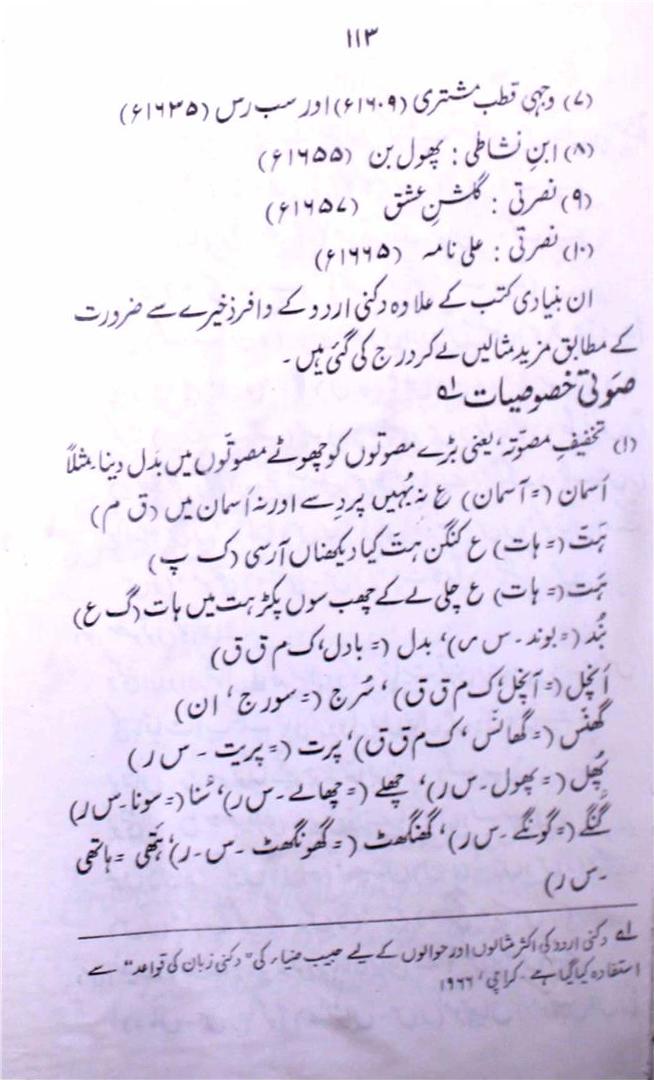 ۱۱۳
(۷) وجہی قطب مشتری (۱۶۰۹ء) اور سب رس (۱۶۳۵ء)
(۸) ابنِ نشاطی : پھول بن (۱۶۵۵ء)
(۹) نصرتی : گلشنِ عشق (۱۶۵۷ء)
(۱۰) نصرتی : علی نامہ (۱۶۶۵ء)
ان بنیادی کتب کے علاوہ دکنی اردو کے وافر ذخیرے سے ضرورت
کے مطابق مزید مثالیں لے کر درج کی گئی ہیں ۔
صَوتی خصوصیات ۱؎
(۱) تخفیفِ مصوّتہ، یعنی بڑے مصوتوں کو چھوٹے مصوتوں میں بدل دینا۔ مثلاً
اَسمان (= آسمان) ع نہ بُہیں پر دِسے اور نہ اَسمان میں (ق م)
ہَت (= ہات) ع کنگن ہت کیا دیکھناں آرسی (ک پ)
ہَت (= ہات) ع چلی لے کے چھب سوں پکڑ ہت میں ہات (گ ع)
بُند (= بوند ۔ س ر)، بدل (= بادل، ک م ق ق)
اَنچل (= آنچل، ک م ق ق)، سُرج (= سورج، ان)
گھنس (= گھانس، ک م ق ق)، پرت (= پریت ۔ س ر)
پھُل (= پھول ۔ س ر)، چھلے (= چھالے ۔ س ر)، سُنا (= سونا ۔ س ر)
گُنگے (= گونگے ۔ س ر)، گھنگھٹ (= گھونگھٹ ۔ س ۔ ر)، ہَتھی = ہاتھی
۔ س ر)
۱؎ دکنی اردو کی اکثر مثالوں اور حوالوں کے لیے حبیب ضیاء کی "دکنی زبان کی قواعد" سے
استفادہ کیا گیا ہے ۔ کراچی، ۱۹۶۶